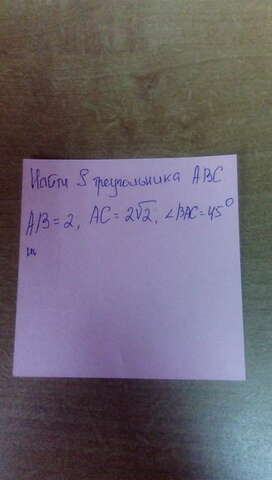 Найти S треугольника ABC
AB = 2, AC = 2√2, ∠BAC = 45°